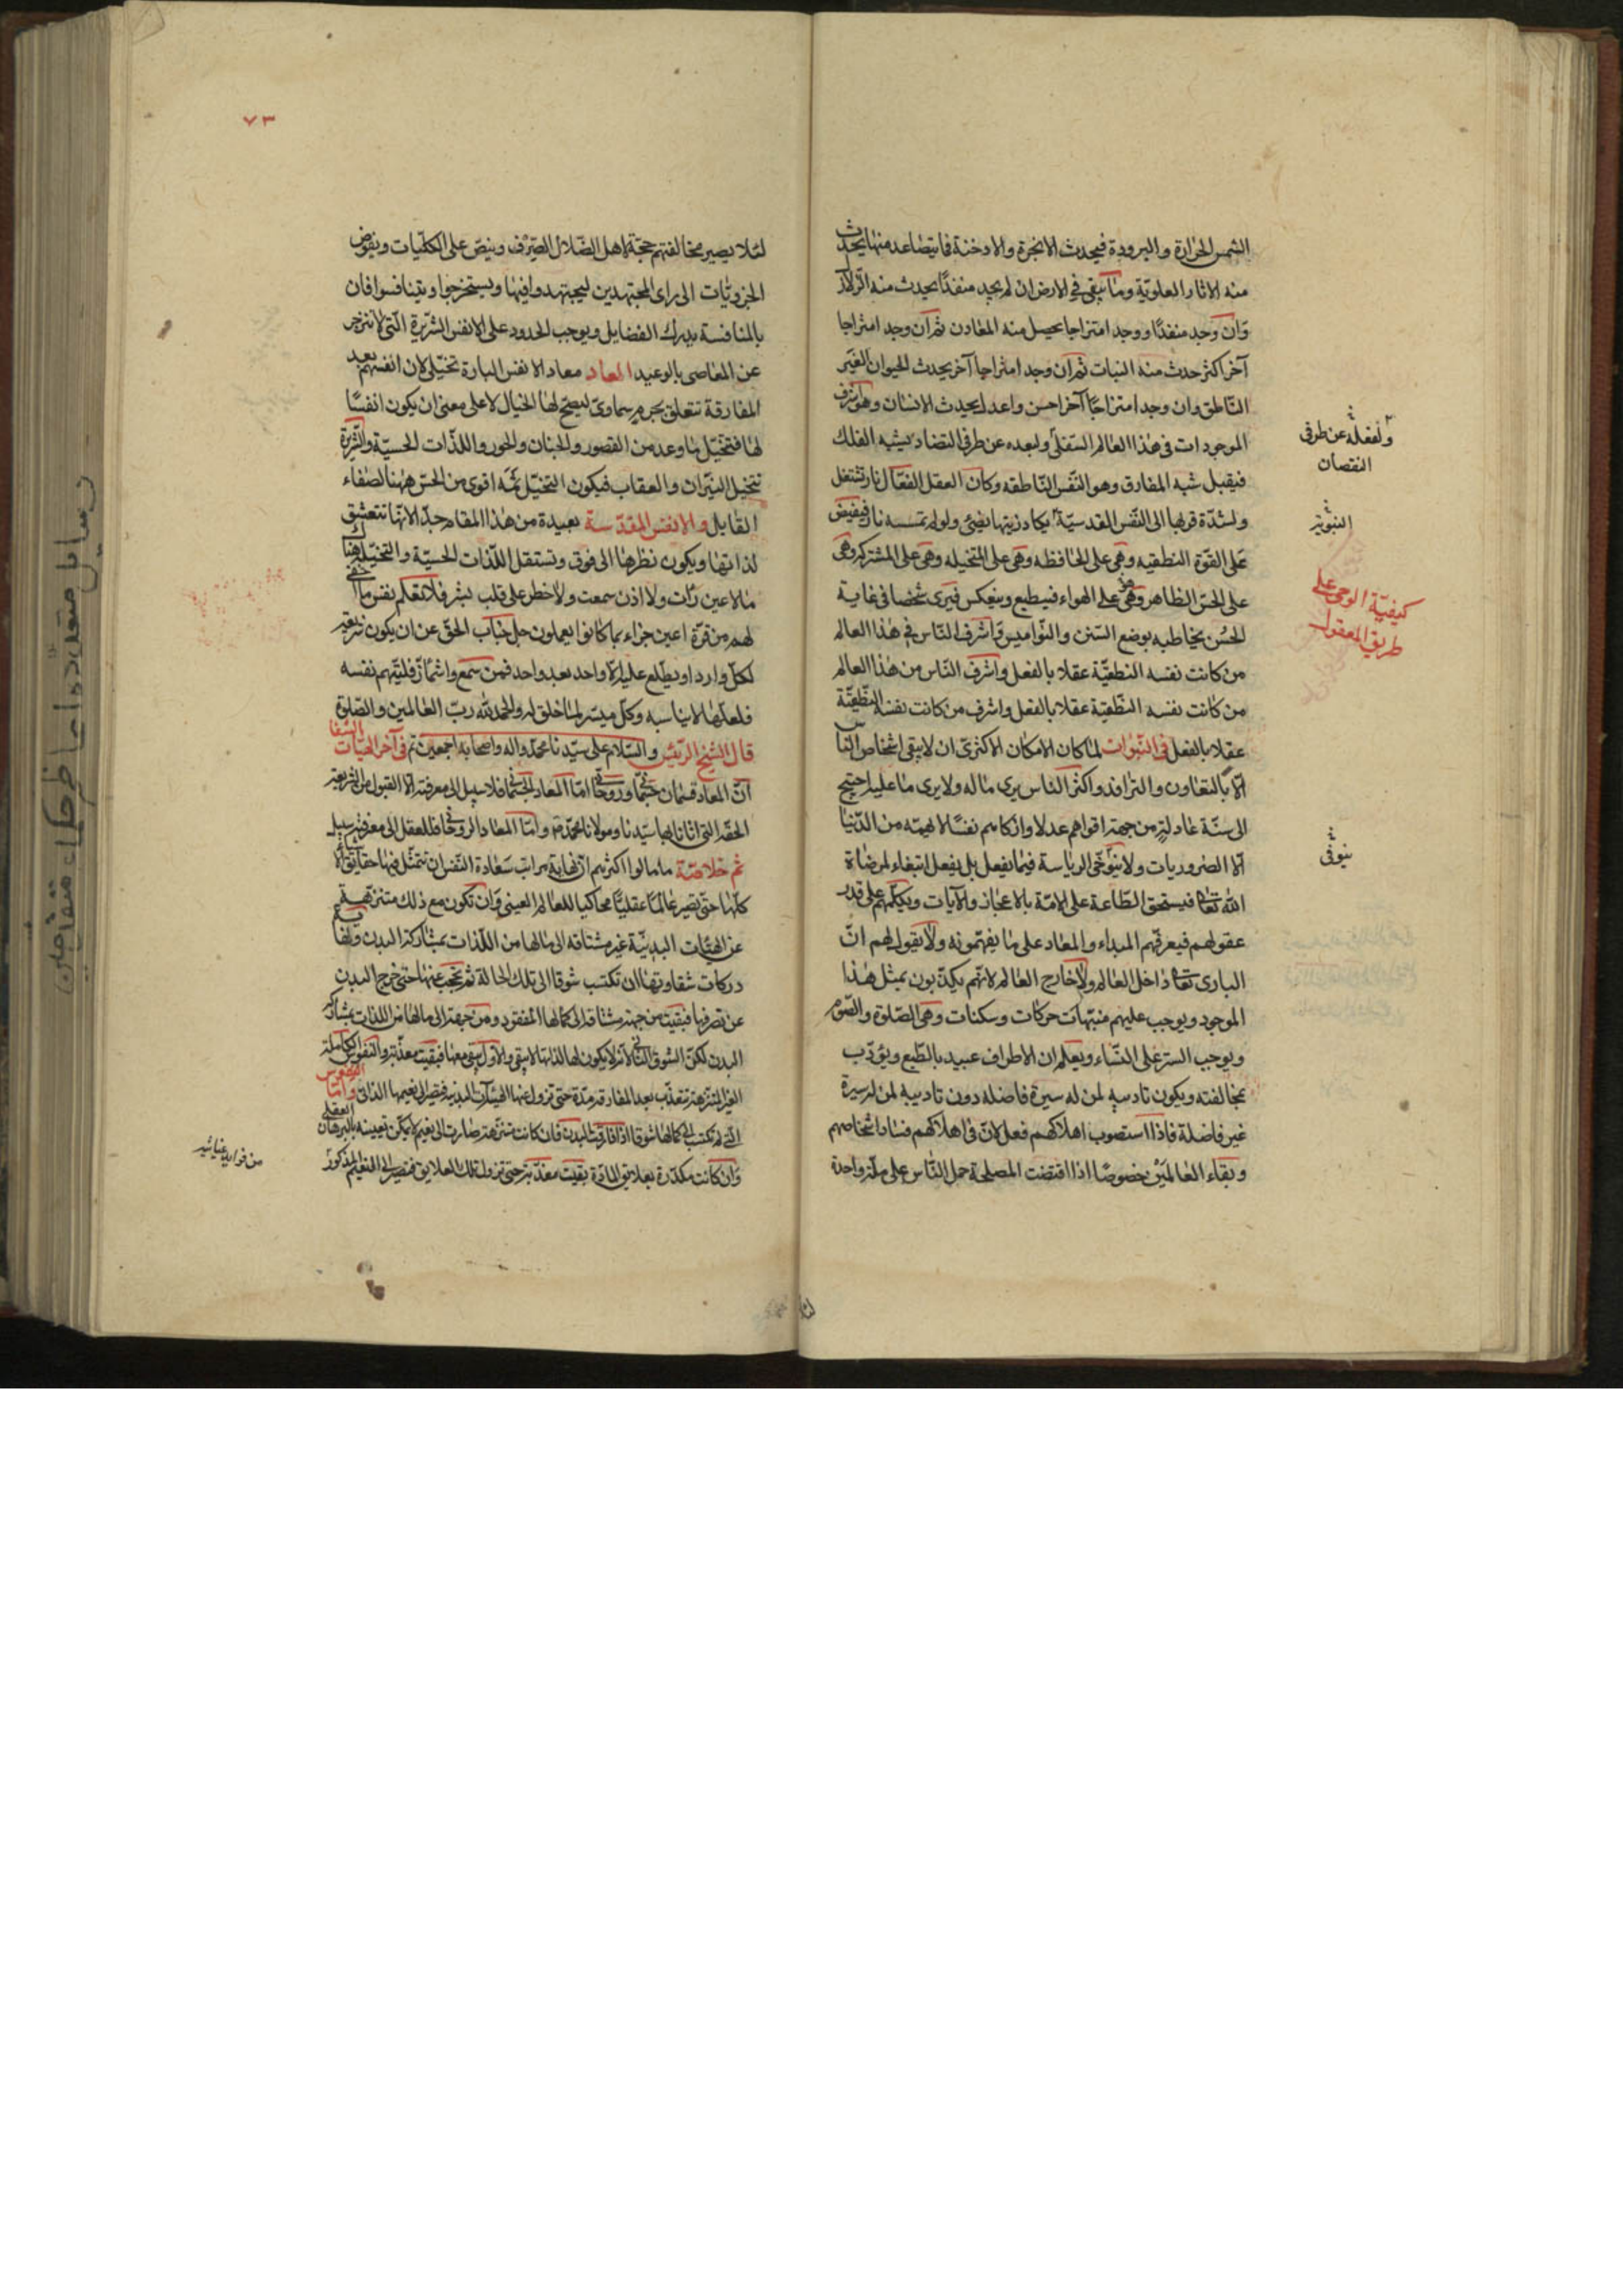 الشمس الحرارة والبرودة فيحدث الابخرة والادخنة فما يتصاعد منها يحدث
منه الاثار العلويّة وما يبقى في الارض ان لم يجد منفذًا يحدث منه الزلازل
وان وجد منفذًا ووجد امتزاجا يحصل منه المعادن ثم ان وجد امتزاجا
آخر اكثر حدث منه النبات ثم ان وجد امتزاجا آخر يحدث الحيوان الغير
الناطق وان وجد امتزاجًا آخر احسن واعدل يحدث الانسان وهو اشرف
الموجودات في هذا العالم السّفلىّ ولبعده عن طرفى التضاد يشبه الفلك
فيقبل شبه المفارق وهو النّفس النّاطقه وكان العقل الفعّال نار تشتعل
ولشدّة قربها الى النّفس القدسيّة يكاد زيتها يضئ ولو لم تمسسه نار فيفيض
على القوّة النطقيه وهى على الحافظه وهى على المتخيله وهى على المشترك وهى
على الحسّ الظاهر وهى على الهواء فينطبع وينعكس فيرى شخصا في غاية
الحسن يخاطبه بوضع السّنن والنّواميس واشرف النّاس في هذا العالم
من كانت نفسه النطقيّة عقلا بالفعل واشرف الناس من هذا العالم
من كانت نفسه النّطقيّة عقلا بالفعل واشرف من كانت نفسه النّطقيّة
عقلا بالفعل في النّبوات لما كان الامكان الاكثرىّ ان لا يبقى اشخاص الناس
الّا بالتعاون والترافد واكثر الناس يرى ما له ولا يرى ما عليه احتيج
الى سنّة عادلة من جهة اقواهم عدلا وازكاهم نفسًا لا يهمّه من الدّنيا
الّا الضروريات ولا يتوخّى الرياسة فيما يفعل بل يفعل ابتغاء لمرضاة
الله تعالى فيستحق الطّاعة على الامّة بالاعجاز والآيات ويكلّمهم على قدر
عقولهم فيعرفهم المبداء والمعاد على ما يفهمونه ولا يقول لهم انّ
البارى تعالى داخل العالم ولا خارج العالم لانهم يكذّبون بمثل هذا
الموجود ويوجب عليهم منبّهات حركات وسكنات وهى الصّلوة والصّوم
ويوجب الستر على النّساء ويعلم ان الاطراف عبيد بالطّبع ويؤدّب
بمخالفته ويكون تاديبه لمن له سيرة فاضله دون تاديبه لمن له سيرة
غير فاضلة فاذا استصوب اهلاكهم فعل لانّ في اهلاكهم فساد اشخاصهم
وبقاء العالمين خصوصًا اذا اقتضت المصلحة حمل النّاس على ملّة واحدة
عن طرفى
النقصان
كيفيّة الوحى على
طريق المعقول
٧٣
لئلا يصير مخالفتهم حجّة لاهل الضّلال الصّرف وينصّ على الكلّيات ويفوّض
الجزويّات الى راى المجتهدين ليجتهدوا فيها ويستخرجوا ويتنافسوا فان
بالمنافسة يدرك الفضايل ويوجب الحدود على الانفس الشّريرة الّتى لا تنزجر
عن المعاصى بالوعيد المعاد معاد الانفس البارة تخيّلىّ لان انفسهم بعد
المفارقة تتعلق بجرم سماوىّ ليصحّ لها الخيال لا على معنى ان يكون انفسًا
لها فتتخيّل ما وعد من القصور والجنان والحور واللذّات الحسيّة والشّريرة
تتخيل النيران والعقاب فيكون التخيّل ثمّه اقوى من الحسّ ههنا لصفاء
القابل والانفس المقدّسة بعيدة من هذا المقام جدّا لانها تتعشّق
لذاتها ويكون نظرها الى فوق وتستقل اللذّات الحسيّة والتخيّلية هناك
ما لا عين رات ولا اذن سمعت ولا خطر على قلب بشر فلا تعلم نفس ما اخفى
لهم من قرّة اعين جزاء بما كانوا يعملون جلّ جناب الحقّ عن ان يكون شريعة
لكلّ وارد او يطّلع عليه الّا واحد بعد واحد فمن سمع واشمأزّ فليتّهم نفسه
فلعلّها لا يناسبه وكلّ ميسّر لما خلق له والحمد لله ربّ العالمين والصّلوة
والسّلام على سيّدنا محمّد واله واصحابه اجمعين تم قال الشيخ الرئيس في آخر الهيّات الشفا
انّ المعاد قسمان جسمانى وروحانى امّا المعاد الجسمانى فلا سبيل الى معرفته الّا القبول من الشريعة
الحقّه التى اتانا بها سيّدنا ومولانا محمّد وامّا المعاد الروحانى فللعقل الى معرفته سبيل
كلّها حتّى تصير عالمًا عقليًّا محاكيا للعالم العينى وان تكون مع ذلك متنزّهة
عن الهيئات البدنيّة غير مشتاقه الى ما لها من اللّذات بمشاركة البدن
دركات شقاوتها ان تكتسب شوقا الى تلك الحالة ثم تحجب عنها حتى خرج البدن